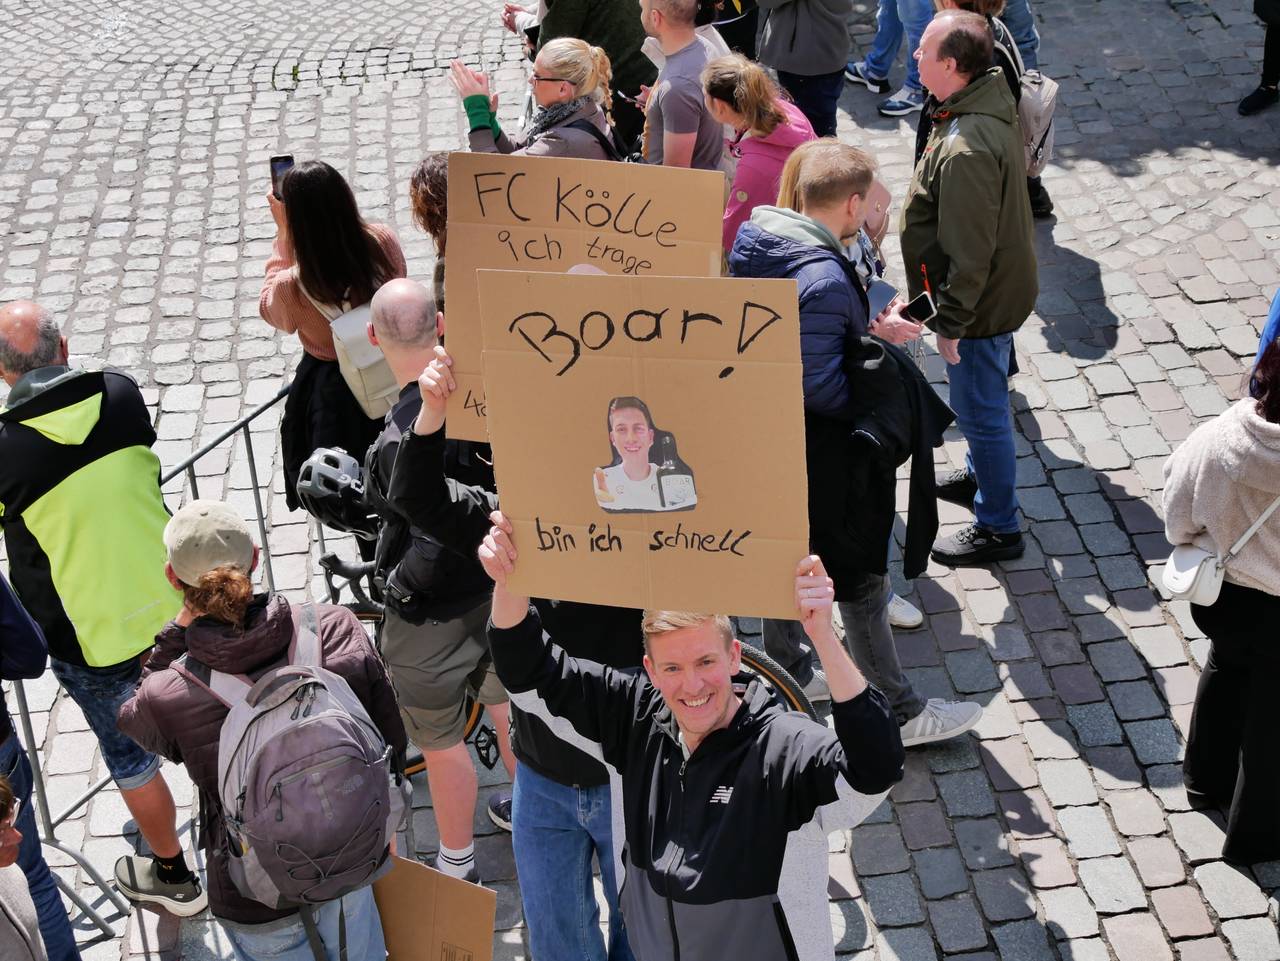 FC Kölle
ich trage
Boar!
bin ich schnell